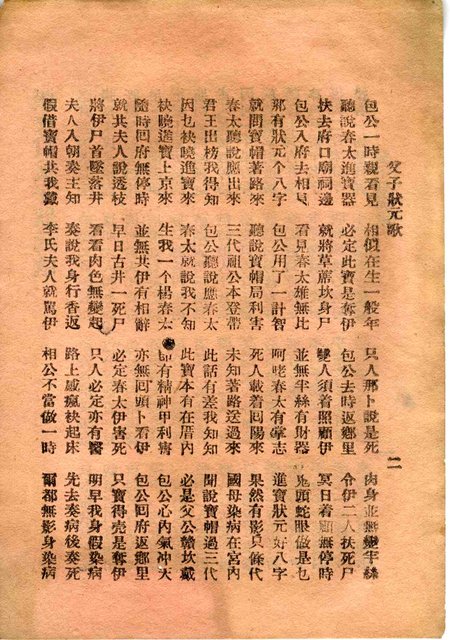 父子狀元歌　二
包公一時親看見　相似在生一般年　只人那卜說是死　肉身並無變半絲
聽說春太進寶器　必定此寶是奪伊　包公去時返鄉里　令伊二人扶死尸
扶去府口廟祠邊　就將草蓆坎身尸　雙人須着照顧伊　冥日着顧無停時
包公入府去相見　看見春太雄無比　並無半絲有財器　鬼頭蛇眼做是乜
那有狀元个八字　包公用了一計智　呵咾春太有孝志　進寶狀元好八字
就問寶帽著路來　聽說寶帽局利害　死人載着回陽來　果然有影只條代
春太聽說應出來　三代祖公本登帶　未知著路送過來　國母染病在宮內
君王出榜我得知　包公聽說應春太　此話有差我知知　聞說寶帽過三代
因乜袂曉進寶來　春太就說我不知　此寶本有在厝內　必是父公贛坎戴
袂曉進寶上京來　生我一个楊春太　有精神甲利害　包公心內氣冲天
隨時回府無停時　並無共伊有相辭　亦無回頭卜看伊　包公回府返鄉里
就共夫人說透枝　早日古井一死尸　必定春太伊害死　只寶得壳是奪伊
將伊尸首墜落井　看看肉色無變起　只人必定亦有醫　明早我身假染病
夫人入朝奏主知　奏說我身行香返　路上感瘋袂起床　先去奏病後奏死
假借寶帽共我戴　李氏夫人就罵伊　相公不當做一時　爾都無影身染病